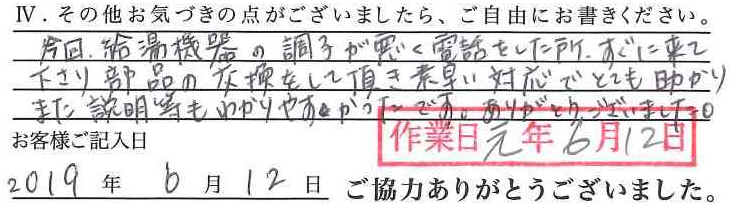 Ⅳ．その他お気づきの点がございましたら、ご自由にお書きください。
今回、給湯機器の調子が悪く電話をした所、すぐに来て
下さり部品の交換をして頂き素早い対応でとても助かり
また説明等もわかりやすかったです。ありがとうございました。
お客様ご記入日
作業日元年6月12日
2019年6月12日 ご協力ありがとうございました。